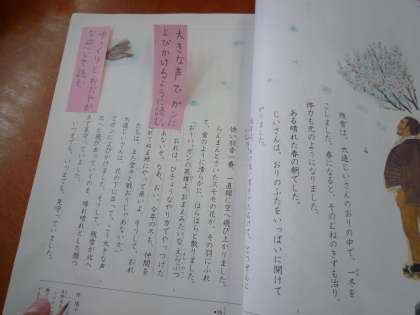 4
残雪は、大造じいさんのおりの中で、一冬を
こしました。春になると、そのむねのきずも治り、
体力も元のようになりました。
ある晴れた春の朝でした。
じいさんは、おりのふたをいっぱいに開けて
やりました。
快い羽音一番、一直線に空へ飛び上がりました。
らんまんとさいたスモモの花が、その羽にふれ
て、雪のように清らかに、はらはらと散りました。
「おうい、ガンの英雄よ。おまえみたいなえらぶつ
を、おれは、ひきょうなやり方でやっつけた
かあないぞ。なあ、おい。今年の冬も、仲間を
連れてぬま地にやって来いよ。そうして、おれ
たちは、また堂々と戦おうじゃあないか。」
大造じいさんは、花の下に立って、こう大きな声
でガンによびかけました。そうして、残雪が北へ
北へと飛び去っていくのを、晴れ晴れとした顔つ
きで見守っていました。
いつまでも、いつまでも、見守っていました。
大きな声でガンに
よびかけるように読む。
ゆっくりとおだやか
な声で読む。